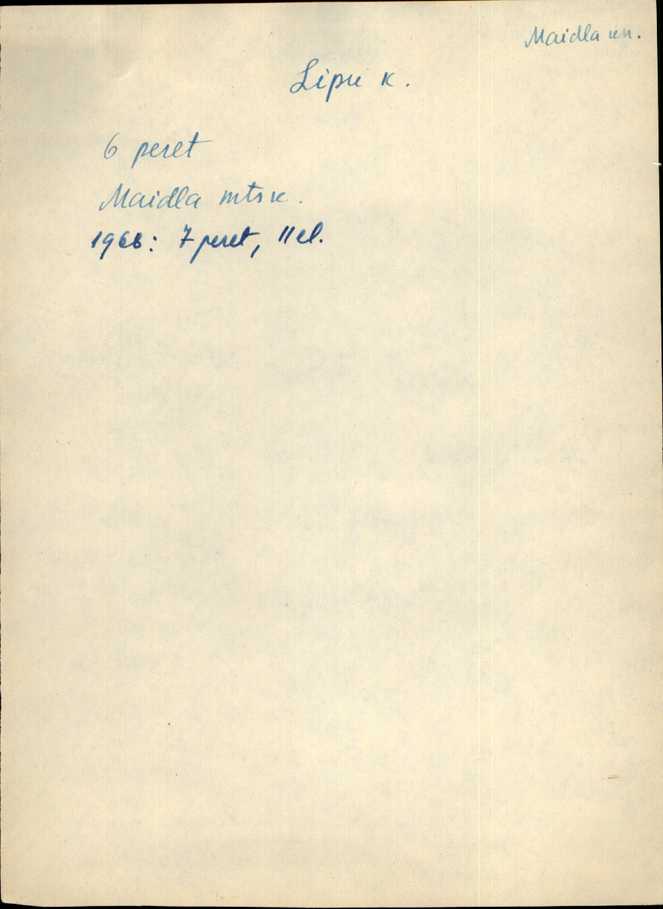 Maidla kn.
Lipu k.
6 peret
Maidla mtsk.
1968: 7 peret, 11 el.